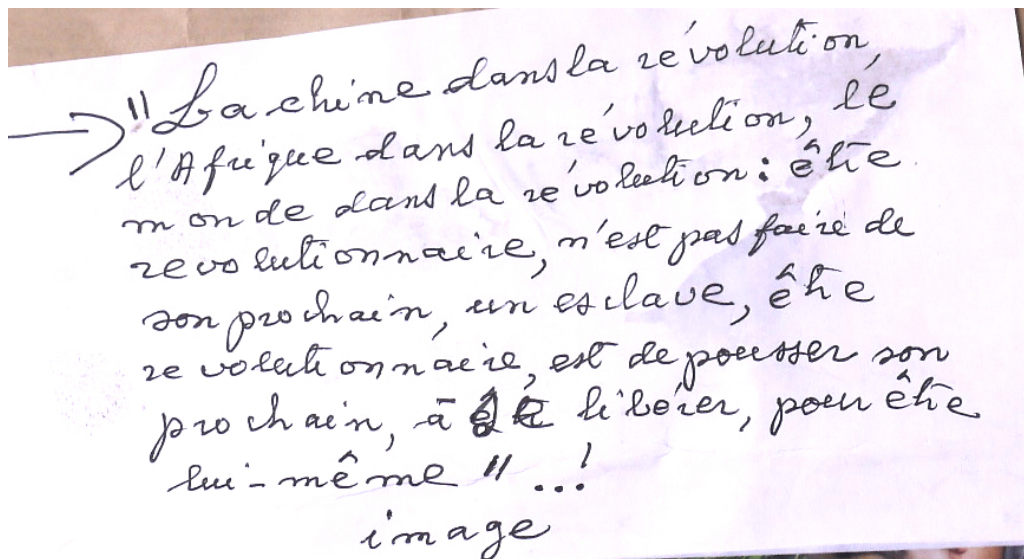 → "La chine dans la révolution,
l'Afrique dans la révolution, lé
monde dans la révolution : être
revolutionnaire, n'est pas faire de
son prochain, un esclave, être
revolutionnaire, est de pousser son
prochain, à libérer, pour être
lui-même "...!
image